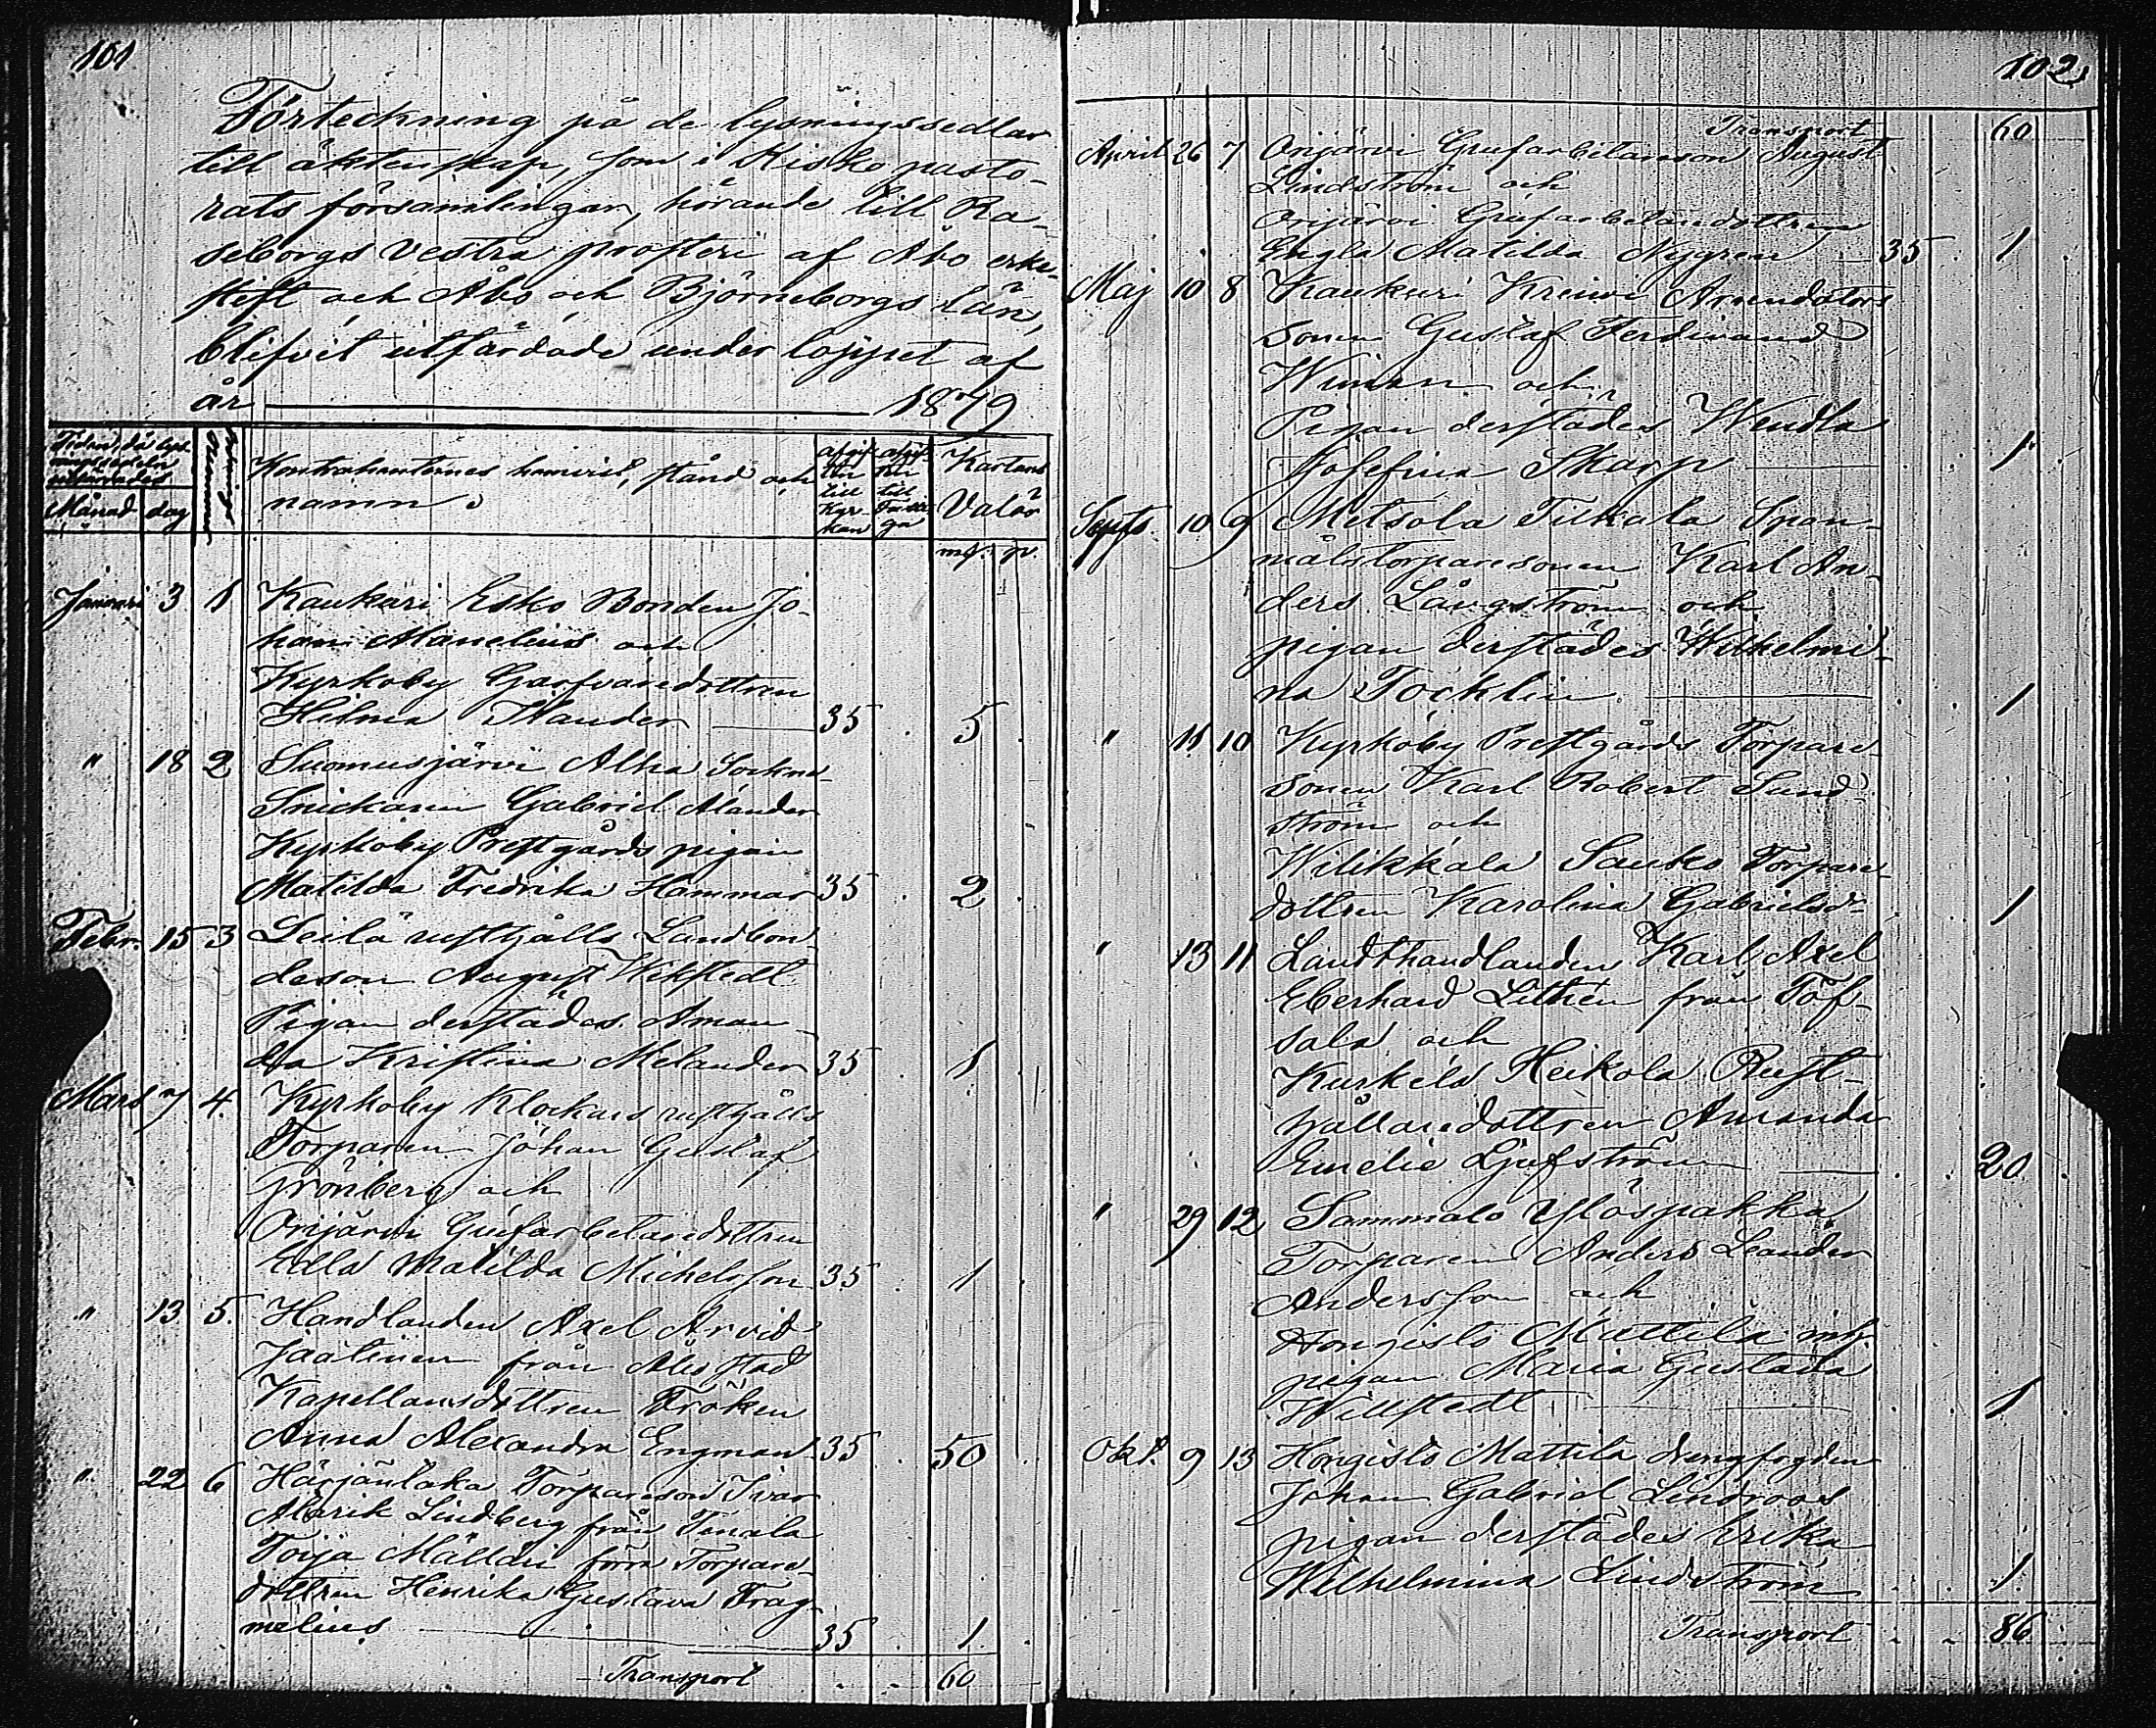 101
Förteckning på de lysningssedlar
till äktenskap, som i Kisko pasto-
rats församlingar, hörande till Ra-
seborgs Vestra prosteri af Åbo erke-
stift och Åbo och Björneborgs Län,
blifvit utfärdade under loppet af
år 1879
Månad dag
Kontrahenternes hemvist, stånd och namn.
afgif-
ten
till
Kyr-
kan
afgif-
ten
till
Fattiga
Kartans
Valör
mf. p.
Januari 3 1 Kaukuri Esko Bonden Jo-
han Manelius och
Kyrkoby Garfvaredottren
Hilma Nander 35 5
" 18 2 Suomusjärvi Alha Sockne
Snickaren Gabriel Alander
Kyrkoby Prestgårds pigan
Matilda Fredrika Hammar 35 2
Febr. 15 3 Leilä rusthålls Landbon-
deson August Wikstedt
Pigan derstädes Aman-
da Kristina Melander 35 1
Mars 7 4. Kyrkoby Klockars rusthålls
Torparen Johan Gustaf
Grönberg och
Orijärvi Grufarbetaredottren
Edla Matilda Michelsson 35 1
" 13 5. Handlanden Axel Arvid
Jaalinen från Åbo stad
Kapellansdottren Fröken
Anna Alexandra Engman 35 50
" 22 6 Härjänlaka Torpareson Ivar
Alarik Lindberg från Tenala
Toija Mälläri förra Torpare-
dottren Henrika Gustava Frag-
melius 35 1
Transport 60
102
Transport 60
April 26 7 Orijärvi Grufarbetareson August
Lindström och
Orijärvi Grufarbetaredottren
Engla Matilda Nygren 35 1
Maj 10 8 Kaukuri Kreivi Arrendators
sonen Gustaf Ferdinand
Wiman och
Pigan derstädes Wendla
Josefina Skarp 1
Septb. 10 9 Metsola Tilkala Span-
målstorparesonen Karl An-
ders Långström och
pigan derstädes Wilhelmi-
na Tocklin 1
" 11 10 Kyrkoby Prestgårds Torpare
sonen Karl Robert Sand-
ström och
Wilikkala Sauko Torpare
dottren Karolina Gabrielsd. 1
" 13 11 Landthandlanden Karl Axel
Eberhard Lithén från Töf-
sala och
Kurkela Heikola Rust-
hållaredottren Amanda
Emelie Ljufström 20
" 29 12 Sammalo Ylöspakka
Torparen Anders Leander
Andersson och
Hongisto Mattila
pigan Maria Gustava
Willstedt 1
Okt. 9 13 Hongisto Mattila drengfogden
Johan Gabriel Lindroos
pigan derstädes Erika
Wilhelmina Lindström 1
Transport 86